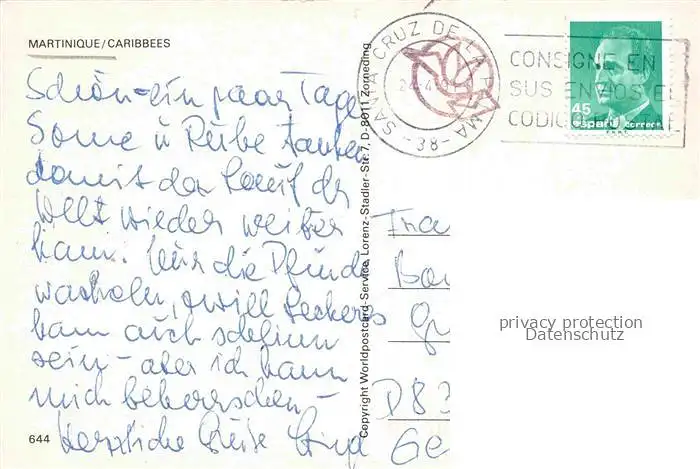 MARTINIQUE/CARIBBEES
SANTA CRUZ DE LA PALMA
-38-
CONSIGNE EN
SUS ENVIOS EL
CODIGO
45
españa correos
Schön - ein paar Tage
Sonne u Ruhe tanken
damit der Lauf der
Welt wieder weiter
kann. Nur die Pfunde
wackeln, zwill Leckeres
kann auch schlimm
sein - aber ich kann
mich beherrschen -
Herzliche Grüße
Fra
D8
Ge
Copyright Worldpostcard-Service, Lorenz-Stadler-Str. 7, D-8011 Zorneding
644
privacy protection
Datenschutz